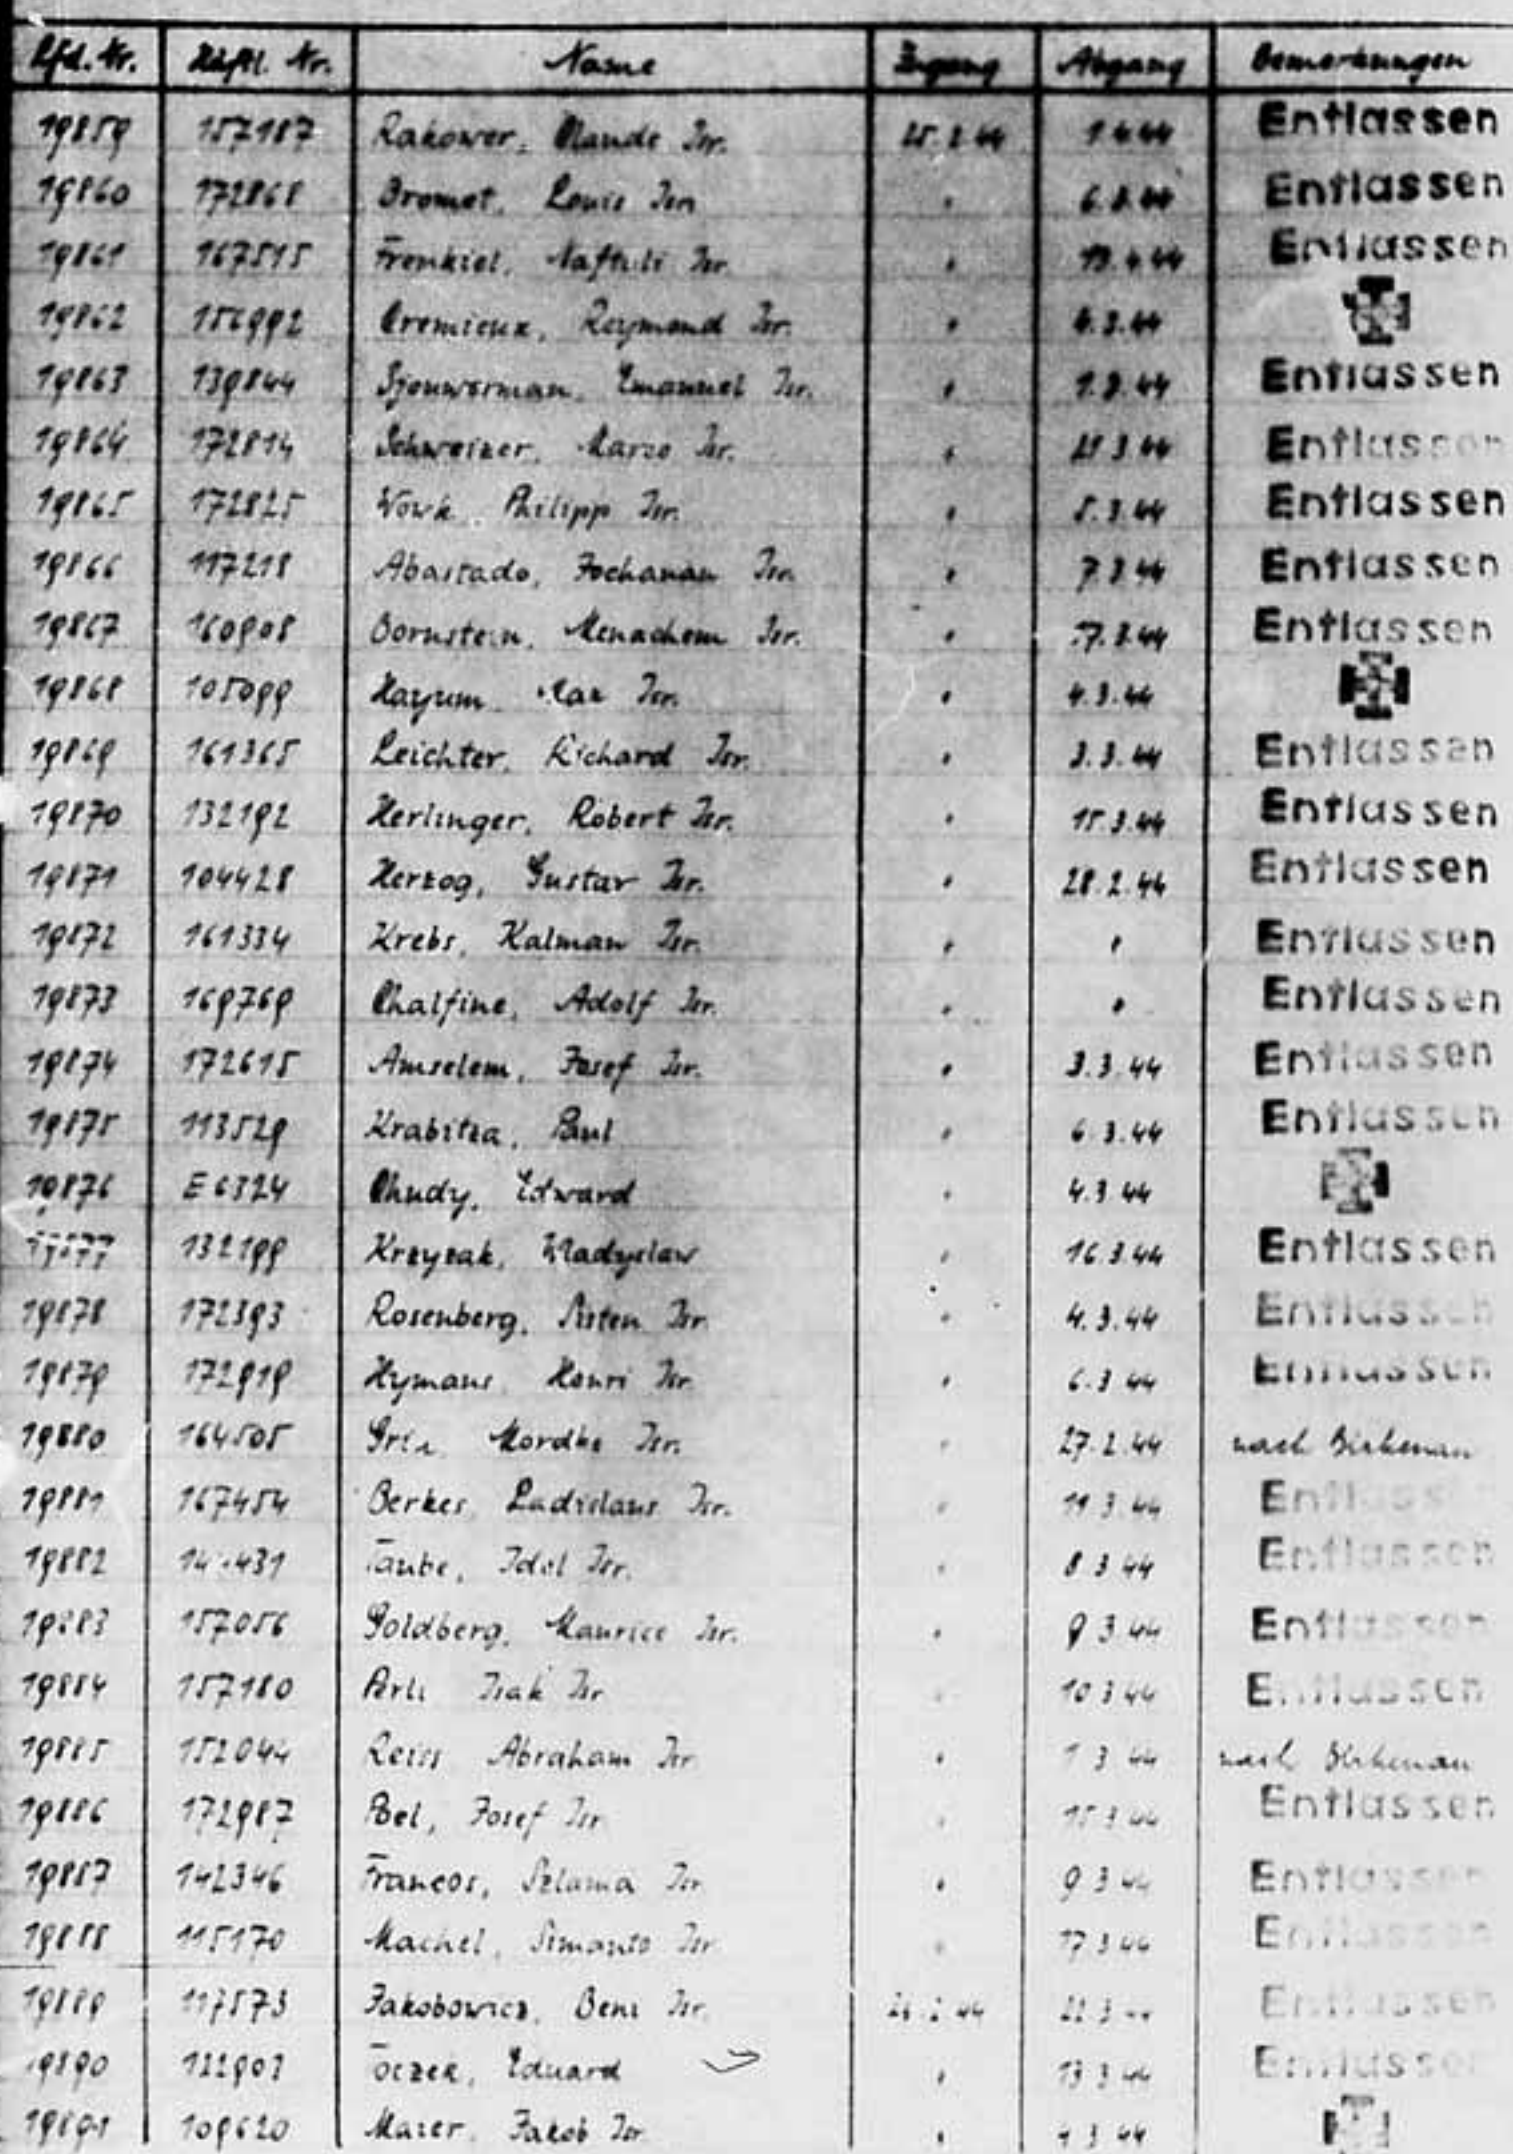 Lfd. Nr. Häftl. Nr. Name Zugang Abgang Bemerkungen
19859 157187 Rakower, Claude Isr. 25.2.44 1.4.44 Entlassen
19860 172868 Bromet, Louis Isr. " 6.3.44 Entlassen
19861 167515 Frenkiel, Naftali Isr. " 13.4.44 Entlassen
19862 156992 Cremieux, Raymond Isr. " 4.3.44
19863 139844 Sjouwerman, Emanuel Isr. " 1.3.44 Entlassen
19864 172814 Schweizer, Marco Isr. " 21.3.44 Entlassen
19865 172825 Work, Philipp Isr. " 5.3.44 Entlassen
19866 117218 Abastado, Jochanan Isr. " 7.3.44 Entlassen
19867 160908 Bornstein, Menachem Isr. " 7.3.44 Entlassen
19868 105099 Hayum, Max Isr. " 4.3.44
19869 161365 Leichter, Richard Isr. " 3.3.44 Entlassen
19870 132192 Herlinger, Robert Isr. " 15.3.44 Entlassen
19871 104428 Herzog, Gustav Isr. " 28.2.44 Entlassen
19872 161334 Krebs, Kalman Isr. " " Entlassen
19873 169769 Chalfine, Adolf Isr. " " Entlassen
19874 172615 Amselem, Josef Isr. " 3.3.44 Entlassen
19875 113529 Krabitza, Paul " 6.3.44 Entlassen
19876 E6324 Chudy, Edward " 4.3.44
19877 132199 Krzyzak, Wladyslaw " 16.3.44 Entlassen
19878 172393 Rosenberg, Isr. " 4.3.44 Entlassen
19879 172919 Hymans, Henri Isr. " 6.3.44 Entlassen
19880 164505 Mordka Isr. " 27.2.44 nach Birkenau
19881 167454 Berkes, Ladislaus Isr. " 11.3.44 Entlassen
19882 Taube, Idel Isr. " 8.3.44 Entlassen
19883 157056 Goldberg, Maurice Isr. " 9.3.44 Entlassen
19884 157180 Perl, Isak Isr. " 10.3.44 Entlassen
19885 152044 Reiss, Abraham Isr. " 1.3.44 nach Birkenau
19886 172987 Poel, Josef Isr. " 15.3.44 Entlassen
19887 142346 Francos, Szlama Isr. " 9.3.44 Entlassen
19888 115170 Machel, Simanto Isr. " 17.3.44 Entlassen
19889 117573 Jakobowicz, Beni Isr. 26.2.44 22.3.44 Entlassen
19890 122903 Toczek, Eduard " 13.3.44 Entlassen
19891 109620 Maser, Jakob Isr. " 4.3.44